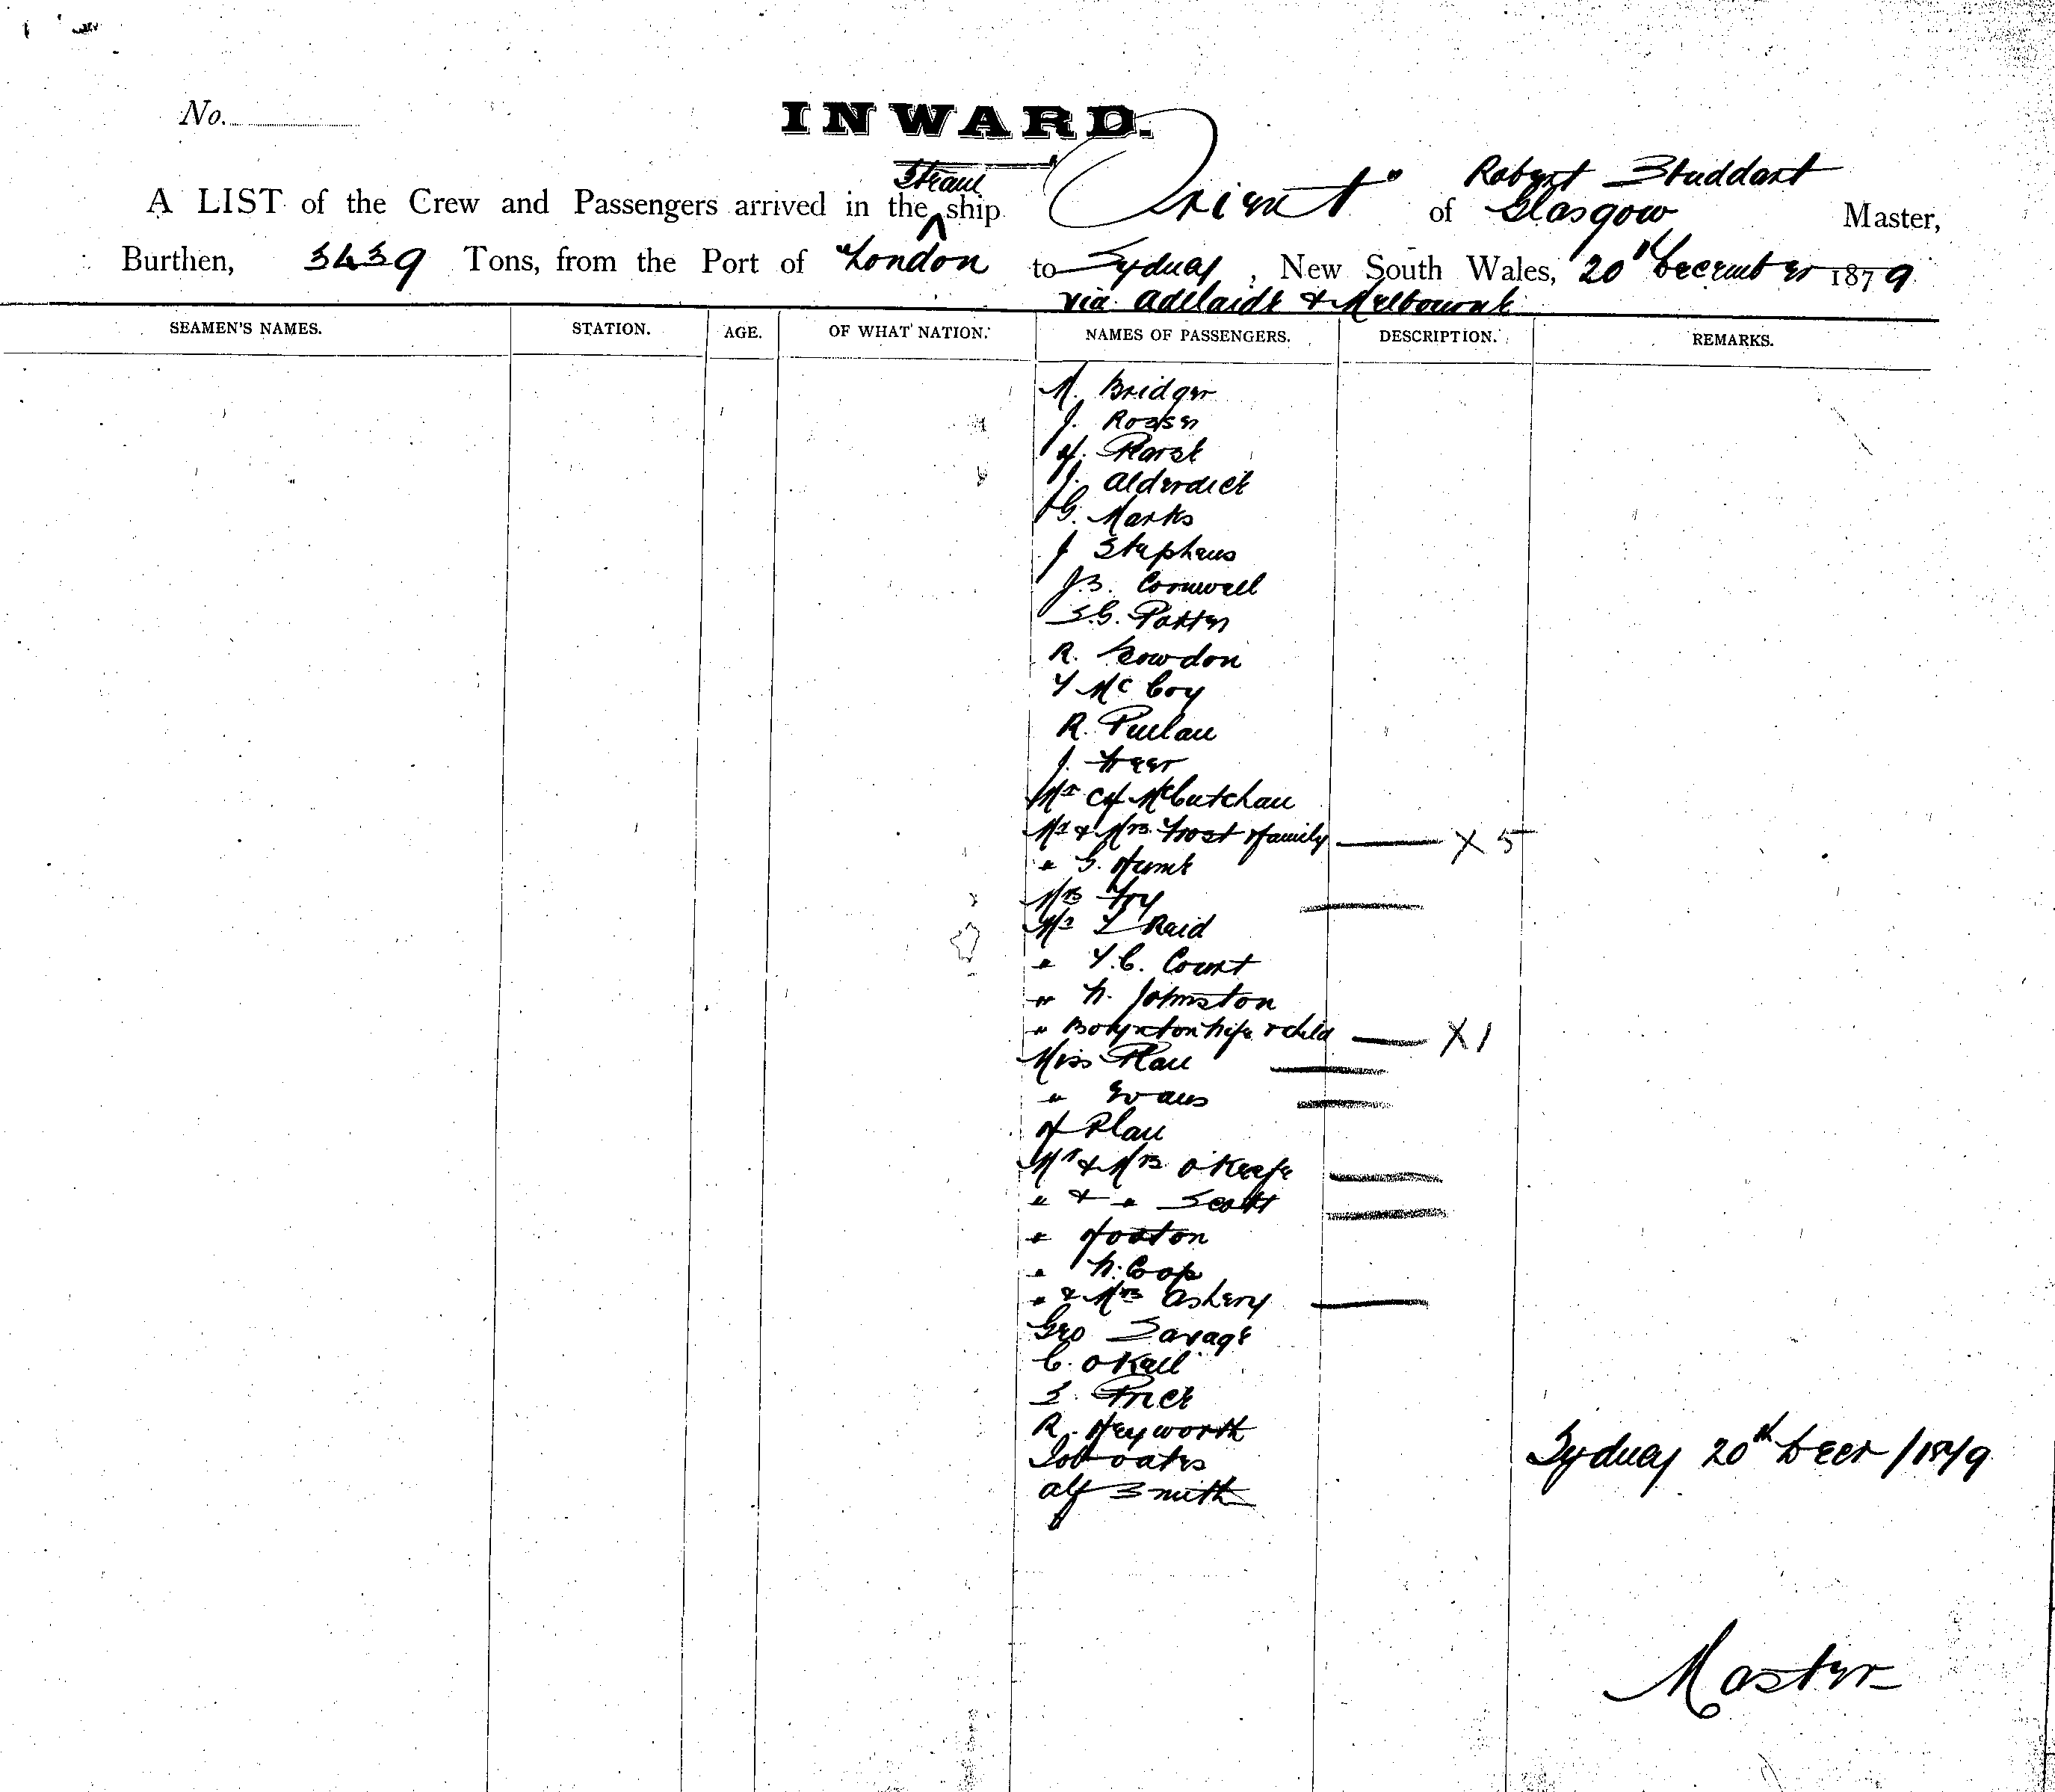 No.
INWARD.
A LIST of the Crew and Passengers arrived in the Steam ship "Orient" of Glasgow Robert Studdart Master,
Burthen, 3439 Tons, from the Port of London to Sydney, New South Wales, 20th December 1879
via Adelaide & Melbourne
SEAMEN'S NAMES. STATION. AGE. OF WHAT NATION. NAMES OF PASSENGERS. DESCRIPTION. REMARKS.
M. Bridger
J. Rosser
H.
J. Alderdick
G. Marks
J Stephens
J.B. Cornwall
S.G. Potter
R. Cowdon
Y McCoy
R.
J. Freer
Mr McCutchan
Mr & Mrs Frost & family X 5
" G. Hume
Mrs Fry
Mr Reid
" T.C. Court
" W. Johnston
" Boynton wife & child X 1
Miss Plau
" Evans
H Plau
Mr & Mrs O'Keefe
" & " Scott
" Hooton
" W. Coop
" & Mrs Ashery
Geo Savage
C. O'Kell
S. Price
R. Heyworth
Job Oates
Alf Smith
Sydney 20th Decr /1879
Master